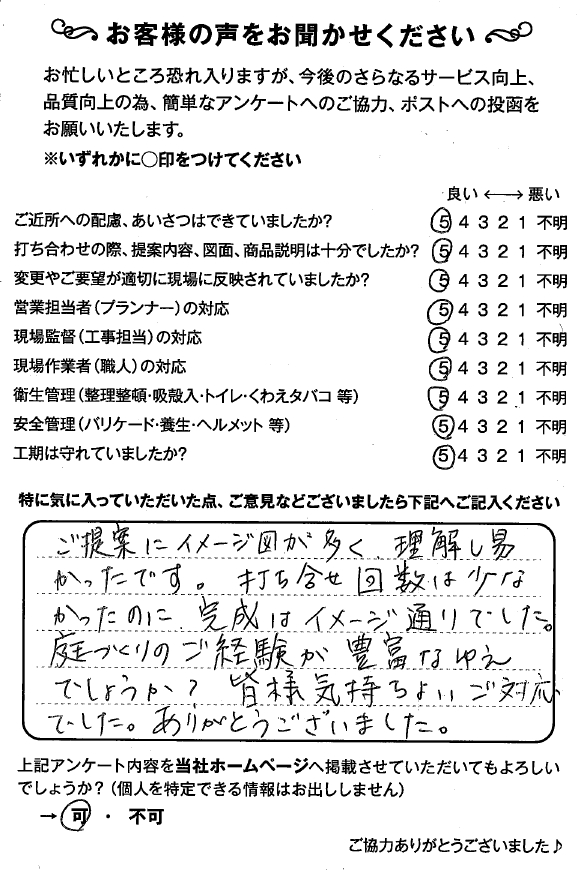 お客様の声をお聞かせください
お忙しいところ恐れ入りますが、今後のさらなるサービス向上、
品質向上の為、簡単なアンケートへのご協力、ポストへの投函を
お願いいたします。
※いずれかに○印をつけてください
良い ←→ 悪い
ご近所への配慮、あいさつはできていましたか? 5 4 3 2 1 不明
打ち合わせの際、提案内容、図面、商品説明は十分でしたか? 5 4 3 2 1 不明
変更やご要望が適切に現場に反映されていましたか? 5 4 3 2 1 不明
営業担当者(プランナー)の対応 5 4 3 2 1 不明
現場監督(工事担当)の対応 5 4 3 2 1 不明
現場作業者(職人)の対応 5 4 3 2 1 不明
衛生管理(整理整頓・吸殻入・トイレ・くわえタバコ 等) 5 4 3 2 1 不明
安全管理(バリケード・養生・ヘルメット 等) 5 4 3 2 1 不明
工期は守れていましたか? 5 4 3 2 1 不明
特に気に入っていただいた点、ご意見などございましたら下記へご記入ください
ご提案にイメージ図が多く、理解し易
かったです。打ち合せ回数は少な
かったのに、完成はイメージ通りでした。
庭づくりのご経験が豊富なゆえ
でしょうか? 皆様気持ちよいご対応
でした。ありがとうございました。
上記アンケート内容を当社ホームページへ掲載させていただいてもよろしい
でしょうか?(個人を特定できる情報はお出ししません)
→ 可 ・ 不可
ご協力ありがとうございました♪